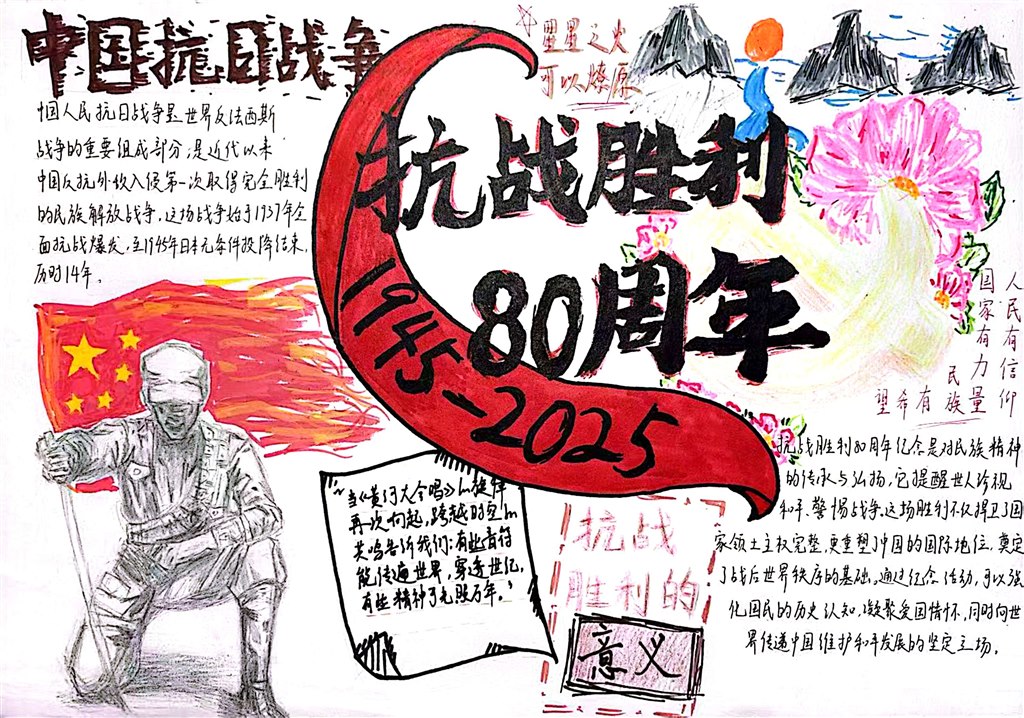 中国抗日战争
中国人民抗日战争是世界反法西斯
战争的重要组成部分,是近代以来
中国反抗外敌入侵第一次取得完全胜利
的民族解放战争。这场战争始于1937年全
面抗战爆发,至1945年日本无条件投降结束,
历时14年。
星星之火
可以燎原
抗战胜利
80周年
1945-2025
人民有信仰
国家有力量
民族有希望
当《黄河大合唱》的旋律
再一次响起,跨越时空的
共鸣告诉我们:有些音符
能传遍世界,穿透世纪,
有些精神可光照万年。
抗战
胜利的
意义
抗战胜利80周年纪念是对民族精神
的传承与弘扬,它提醒世人珍视
和平、警惕战争。这场胜利不仅捍卫了国
家领土主权完整,更重塑了中国的国际地位,奠定
了战后世界秩序的基础。通过纪念活动,可以强
化国民的历史认知,凝聚爱国情怀,同时向世
界传递中国维护和平发展的坚定立场。